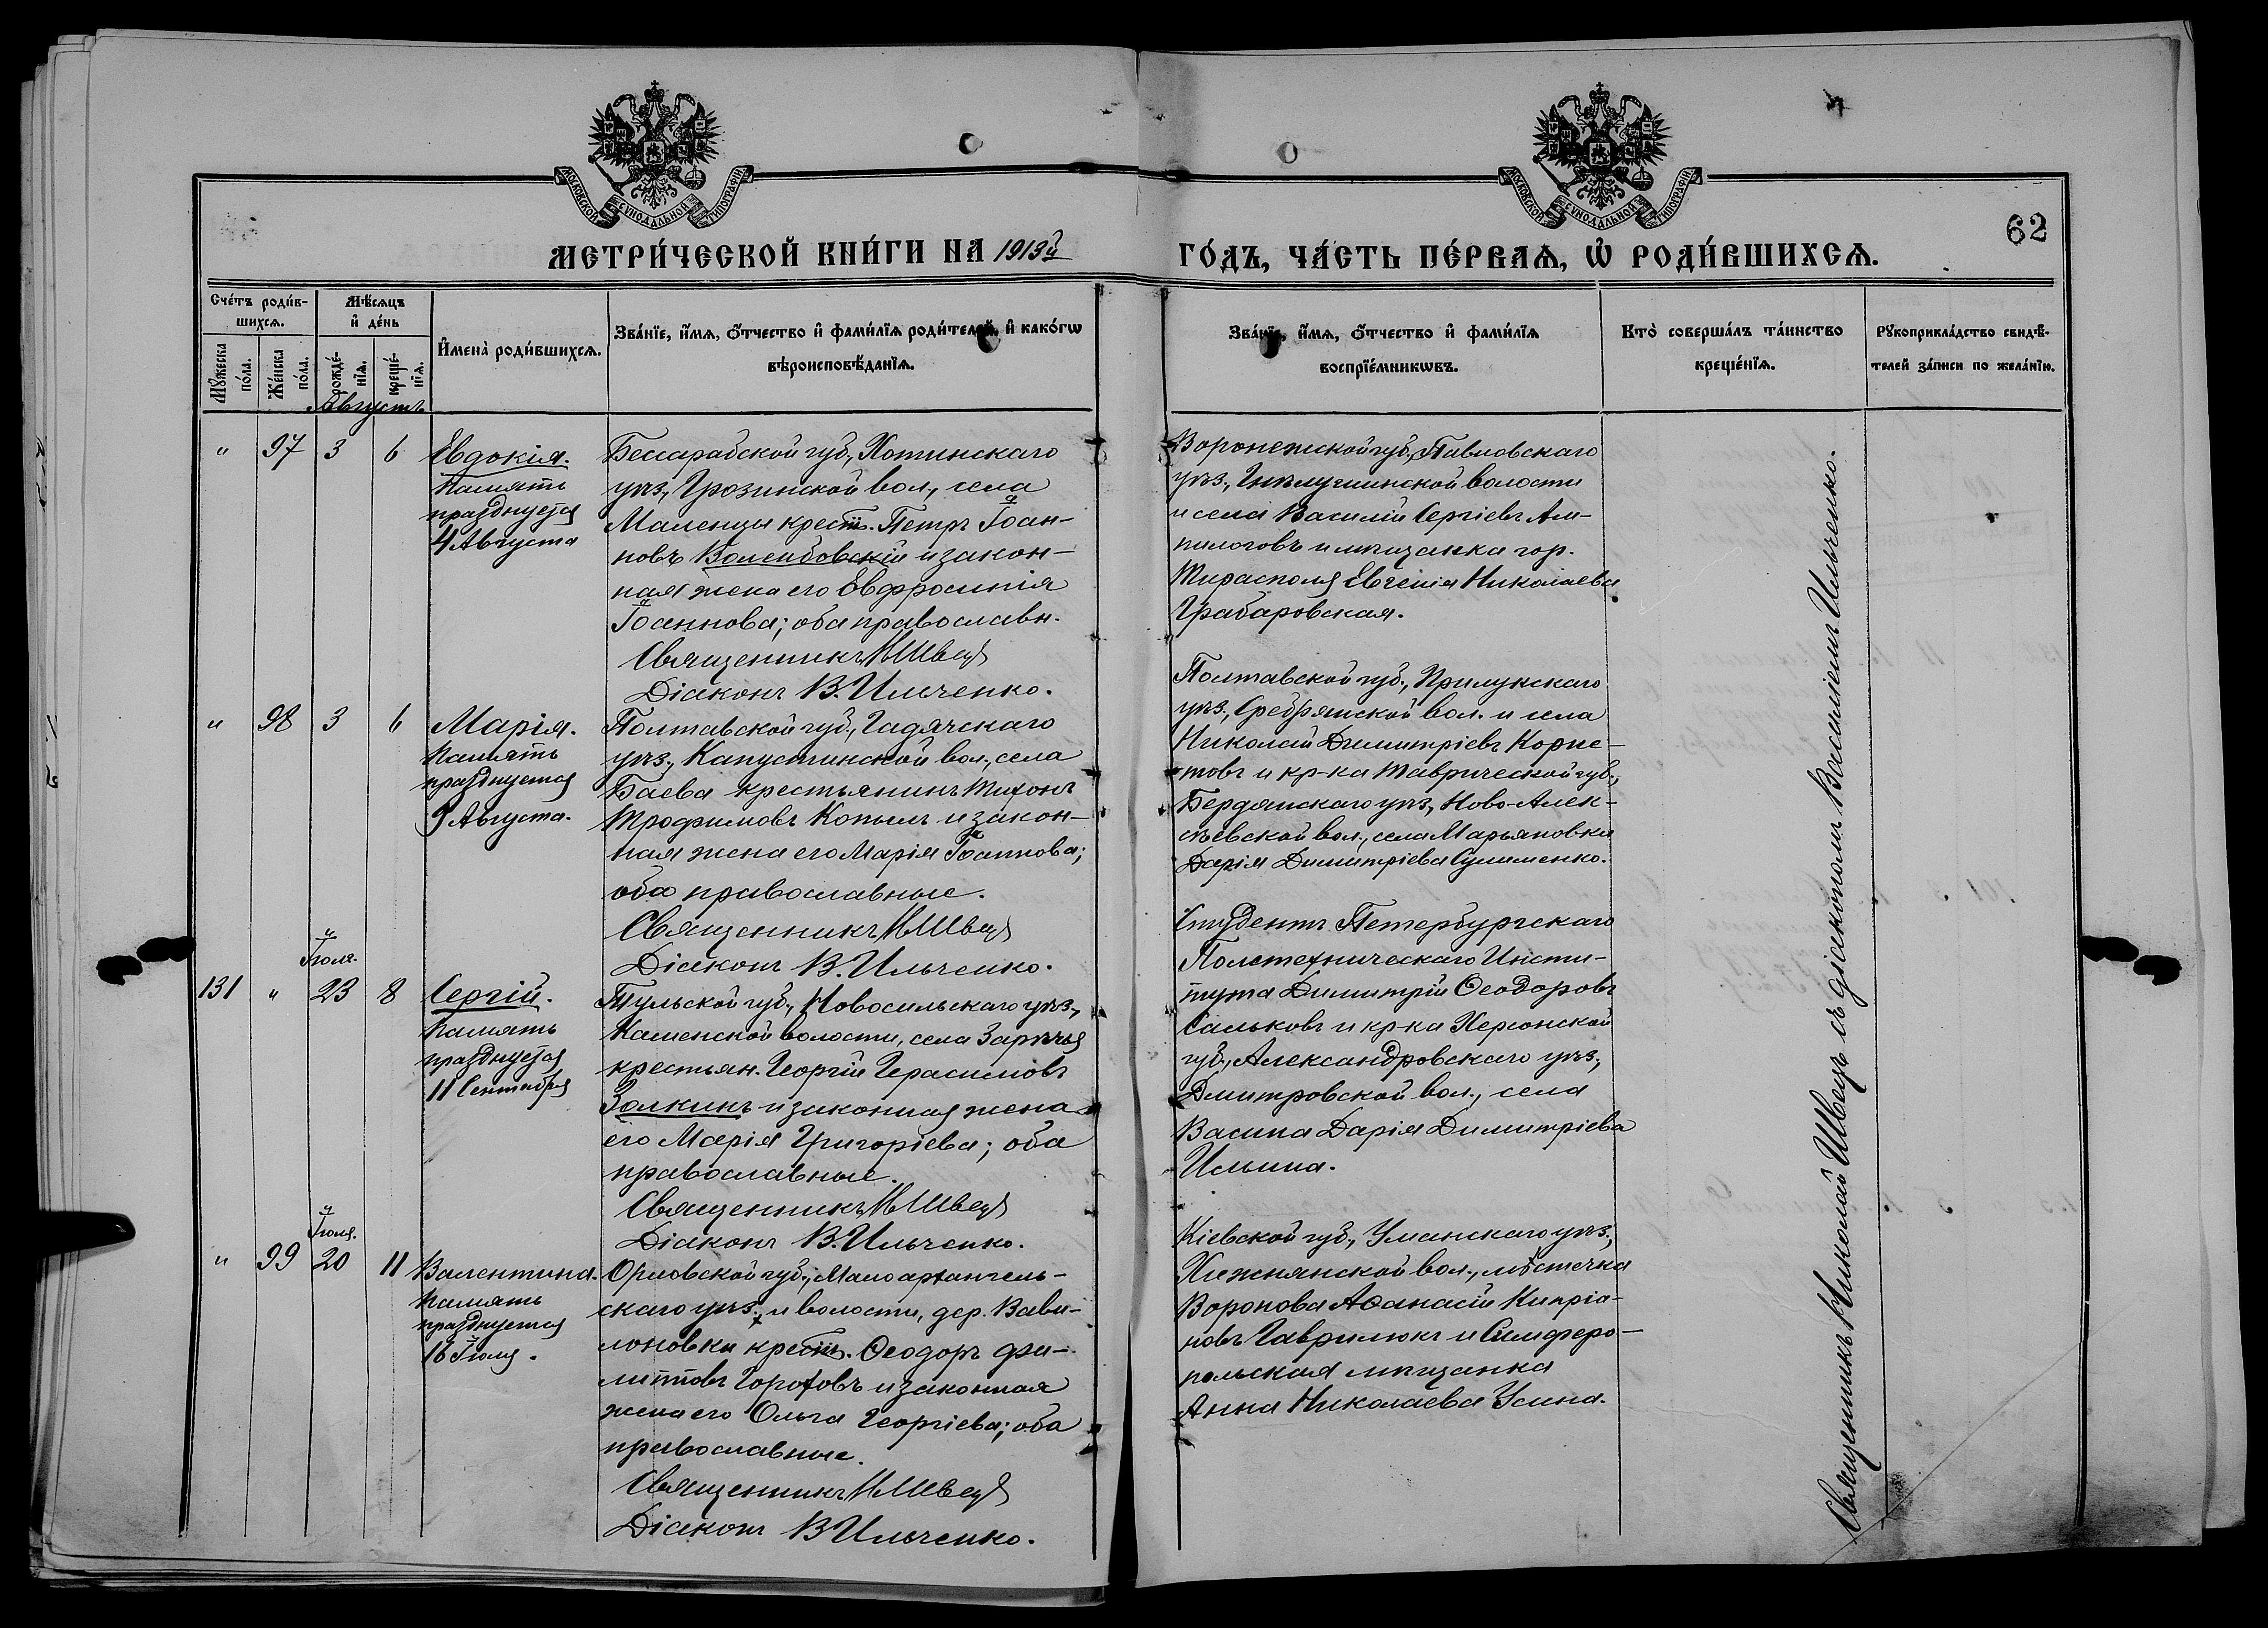 МОСКОВСКОЙ СѴНОДАЛЬНОЙ ТИПОГРАФІИ
МОСКОВСКОЙ СѴНОДАЛЬНОЙ ТИПОГРАФІИ
62
МЕТРИ́ЧЕСКОЙ КНИ́ГИ НА 1913й
ГО́ДЪ, ЧА́СТЬ ПЕ́РВАѦ, Ѡ҆ РОДИ́ВШИХСѦ.
Сче́тъ роди́в-
шихсѧ.
Мѣ́сѧцъ
и҆ де́нь
Мꙋ́жеска
по́ла.
Же́нска
по́ла.
рожде́-
нїѧ.
креще́-
нїѧ.
И҆мена̀ роди́вшихсѧ.
Зва́нїе, и҆́мѧ, ѻ҆́тчество и҆ фами́лїѧ роди́телей, и҆ како́гѡ
вѣроисповѣ́данїѧ.
Зва́нїе, и҆́мѧ, ѻ҆́тчество и҆ фами́лїѧ
воспрїе́мникѡвъ.
Кто̀ соверша́лъ та́инство
креще́нїѧ.
Рꙋкоприкла́дство свидѣ́-
телей за́писи по жела́нїю.
Августъ
" 97 3 6 Евдокія.
Память
празднуется
4 Августа
Бессарабской губ., Хотинскаго
уѣз., Грозинской вол., села
Маленцы крест. Петръ Іоан-
новъ и закон-
ная жена его Евфросинія
Іоаннова; оба православн.
Священникъ Н Швецъ
Діаконъ В. Ильченко.
Воронежской губ., Павловскаго
уѣз., волости
и села Василій Сергіевъ Али-
пилоговъ и мѣщанка гор.
Тирасполя Евгенія Николаева
Грабаровская.
" 98 3 6 Марія.
Память
празднуется
9 Августа.
Полтавской губ., Гадячскаго
уѣз., Капустинской вол., села
Баева крестьянинъ Тихонъ
Трофимовъ Копылъ и закон-
ная жена его Марія Іоаннова;
оба православные.
Священникъ Н Швецъ
Діаконъ В. Ильченко.
Полтавской губ., Прилукскаго
уѣз., Сребрянской вол. и села
Николай Димитріевъ Корне-
товъ и кр-ка Таврической губ.,
Бердянскаго уѣз., Ново-Алек-
сѣевской вол., села Марьяновки
Дарія Димитріева Сулименко.
Іюля.
131 " 23 8 Сергій.
Память
празднуется
11 Сентября
Тульской губ., Новосильскаго уѣз.,
Каменской волости, села Зарѣчья
крестьян. Георгій Герасимовъ
Золкинъ и законная жена
его Марія Григоріева; оба
православные.
Священникъ Н Швецъ
Діаконъ В. Ильченко.
Студентъ Петербургскаго
Политехническаго Инсти-
тута Димитрій Ѳеодоровъ
Сальковъ и кр-ка Херсонской
губ., Александровскаго уѣз.,
Дмитровской вол., села
Васина Дарія Димитріева
Ильина.
Іюля.
" 99 20 11 Валентина.
Память
празднуется
16 Іюля.
Орловской губ., Малоархангель-
скаго уѣз. и волости, дер. Вави-
лоновки крест. Ѳеодоръ Фи-
липповъ Гороховъ и законная
жена его Ольга Георгіева; оба
православные.
Священникъ Н Швецъ
Діаконъ В Ильченко.
Кіевской губ., Уманскаго уѣз.,
Хижнянской вол., мѣстечка
Воронова Аѳанасій Кипріа-
новъ Гаврилюкъ и Симферо-
польская мѣщанка
Анна Николаева Усина.
Священникъ Николай Швецъ съ діакономъ Василіемъ Ильченко.